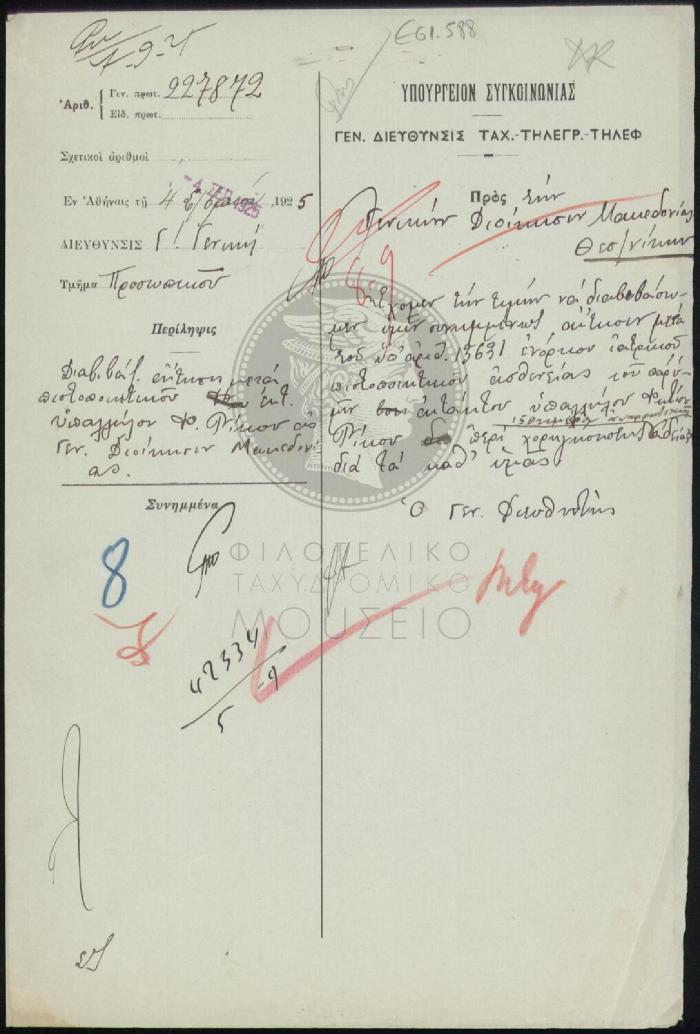 EGI.588
Ἀριθ. Γεν. πρωτ. 227872
Εἰδ. πρωτ.
Σχετικοὶ ἀριθμοὶ
Ἐν Ἀθήναις τῇ 4 1925
ΔΙΕΥΘΥΝΣΙΣ Γ! Γενική
Τμῆμα Προσωπικοῦ
Περίληψις
Διαβιβάζ. αἴτησις μετὰ
πιστοποιητικοῦ ἐκτ.
ὑπαλλήλου Φ. Ρίκου εἰς
Γεν. Διοίκησιν Μακεδονί
ας.
Συνημμένα
8
42334
5-9
ΥΠΟΥΡΓΕΙΟΝ ΣΥΓΚΟΙΝΩΝΙΑΣ
ΓΕΝ. ΔΙΕΥΘΥΝΣΙΣ ΤΑΧ.-ΤΗΛΕΓΡ.-ΤΗΛΕΦ
Πρὸς τὴν
Γενικὴν Διοίκησιν Μακεδονίας
Θεσ/νίκην
8-9
Ἔχομεν τὴν τιμὴν νὰ διαβιβάσω
μεν ὑμῖν συνημμένως αἴτησιν μετὰ
τοῦ ὑπ' ἀριθ. 15691 ἐνόρκου ἰατρικοῦ
πιστοποιητικοῦ ἀσθενείας τοῦ παρ'
ὑμῖν ἐκτάκτου ὑπαλλήλου
Ρίκου περὶ χορηγήσεως ἀδείας
διὰ τὰ καθ' ὑμᾶς.
Ὁ Γεν. Διευθυντὴς
ΦΙΛΟΤΕΛΙΚΟ
ΤΑΧΥΔΡΟΜΙΚΟ
ΜΟΥΣΕΙΟ